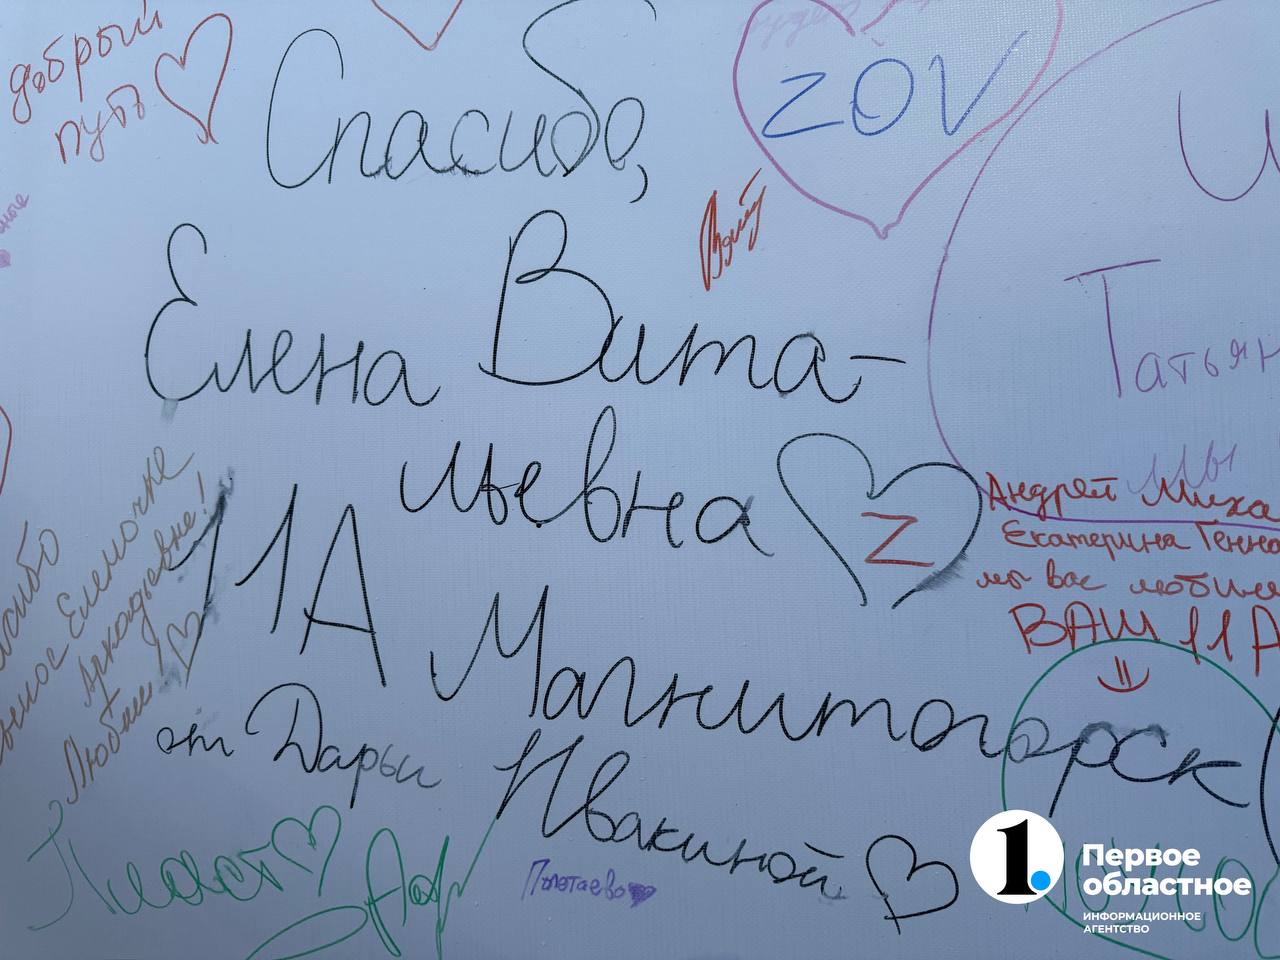 добрый
путь
Спасибо,
ZOV
Елена Вита-
льевна
Z
11А Магнитогорск
от Дарьи Ивакиной
Татьян
Мы
Андрей Миха
Екатерина Генна
мы вас любим
ВАШ 11 А
Еленочке
Аркадьевне!
Любим!
Полетаево
1.
Первое
областное
ИНФОРМАЦИОННОЕ
АГЕНТСТВО